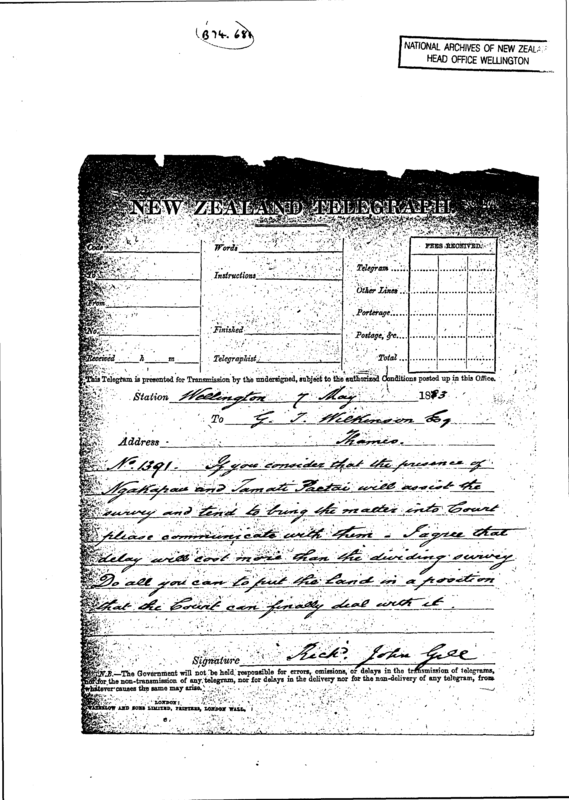 (B74. 68)
NATIONAL ARCHIVES OF NEW ZEALA
HEAD OFFICE WELLINGTON
NEW ZEALAND TELEGRAPH.
Code
Words
FEES RECEIVED.
To
Instructions
Telegram
Other Lines
From
Porterage
No.
Finished
Postage, &c.
Received h m
Telegraphist
Total
This Telegram is presented for Transmission by the undersigned, subject to the authorized Conditions posted up in this Office.
Station Wellington 7 May 1883
To G. T. Wilkinson Esq
Address - Thames.
No 1391. If you consider that the presence of
Ngakapau and Tamati Paetai will assist the
survey and tend to bring the matter into Court
please communicate with them - I agree that
delay will cost more than the dividing survey
Do all you can to put the land in a position
that the Court can finally deal with it.
Signature Richd. John Gill
N.B.—The Government will not be held responsible for errors, emissions, or delays in the transmission of telegrams,
nor for the non-transmission of any telegram, nor for delays in the delivery nor for the non-delivery of any telegram, from
whatever causes the same may arise.
LONDON:
WATERLOW AND SONS LIMITED, PRINTERS, LONDON WALL.